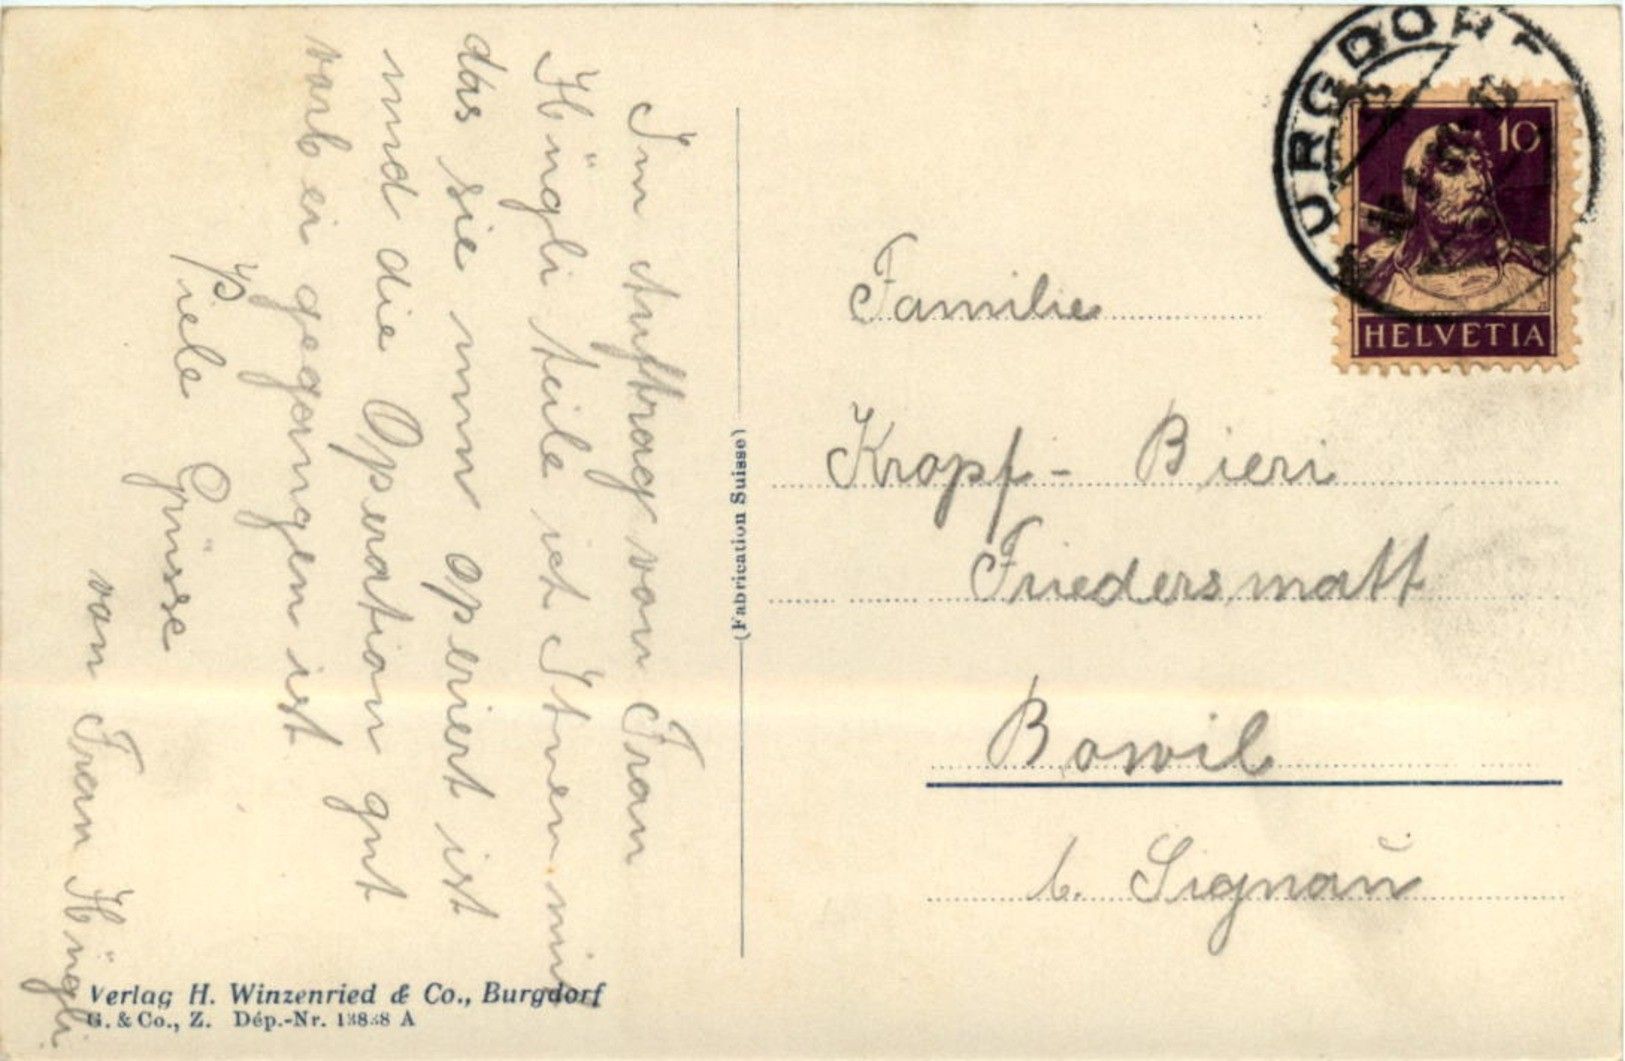 Im Auftrag von Frau
Hüngli teile ich Ihnen mit
das sie nun operiert ist
und die Operation gut
vorbei gegangen ist
Viele Grüsse
von Frau Hüngli
Verlag H. Winzenried & Co., Burgdorf
G. & Co., Z. Dép.-Nr. A
(Fabrication Suisse)
BURGDORF
10
HELVETIA
Familie
Kropf - Bieri
Friedersmatt
Bowil
b. Signau